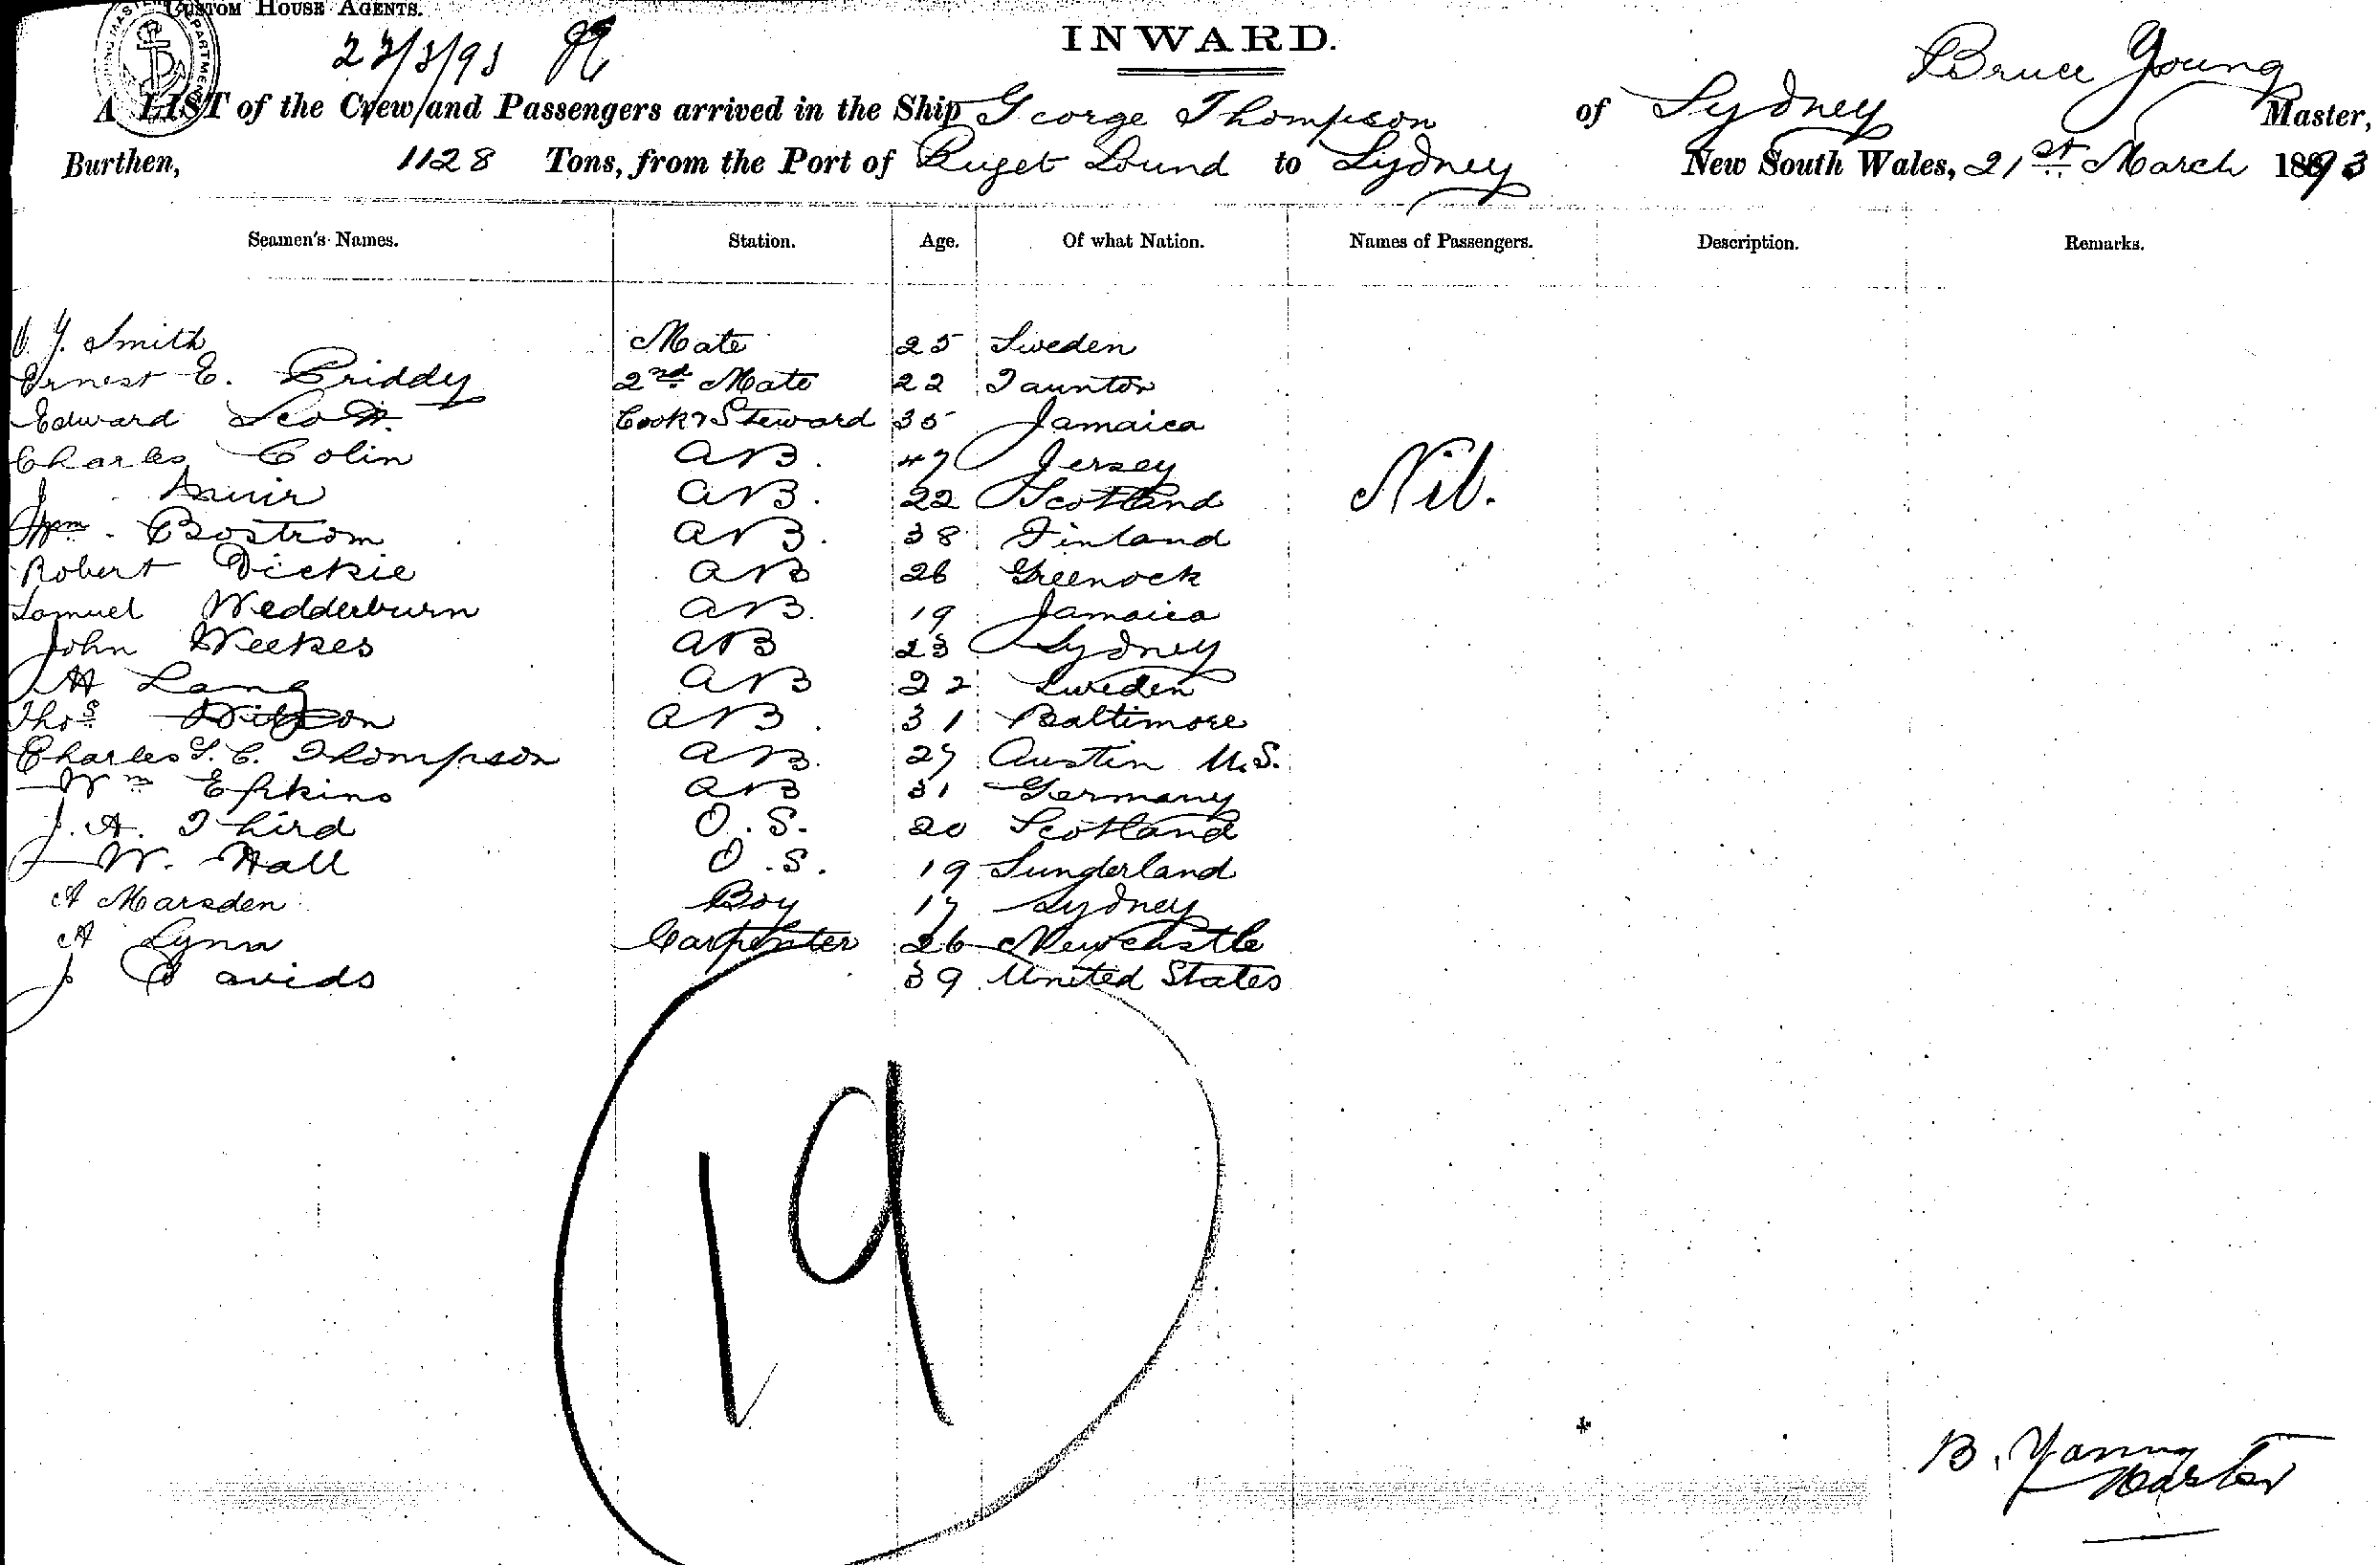 CUSTOM HOUSE AGENTS.
INWARD.
Bruce Young
A LIST of the Crew and Passengers arrived in the Ship George Thompson of Sydney Master,
Burthen, 1128 Tons, from the Port of Puget Sound to Sydney New South Wales, 21st March 1893
Seamen's Names. Station. Age. Of what Nation. Names of Passengers. Description. Remarks.
Smith Mate 25 Sweden
Ernest E. Priddy 2nd Mate 22 Taunton
Edward Scott Cook & Steward 35 Jamaica
Charles Colin AB. 47 Jersey
J. Muir AB. 22 Scotland
Nil.
Wm. Bostrom AB. 38 Finland
Robert Dickie AB 26 Greenock
Samuel Wedderburn AB. 19 Jamaica
John Weekes AB 23 Sydney
A Lang AB 22 Sweden
Thos AB. 31 Baltimore
Charles T. C. Thompson AB. 27 Austin U.S.
Wm Epkins AB 31 Germany
J. A. Third O.S. 20 Scotland
W. Hall O.S. 19 Sunderland
A Marsden Boy 17 Sydney
A Lynn Carpenter 26 Newcastle
J Davids 39 United States
19
B. Young
Master